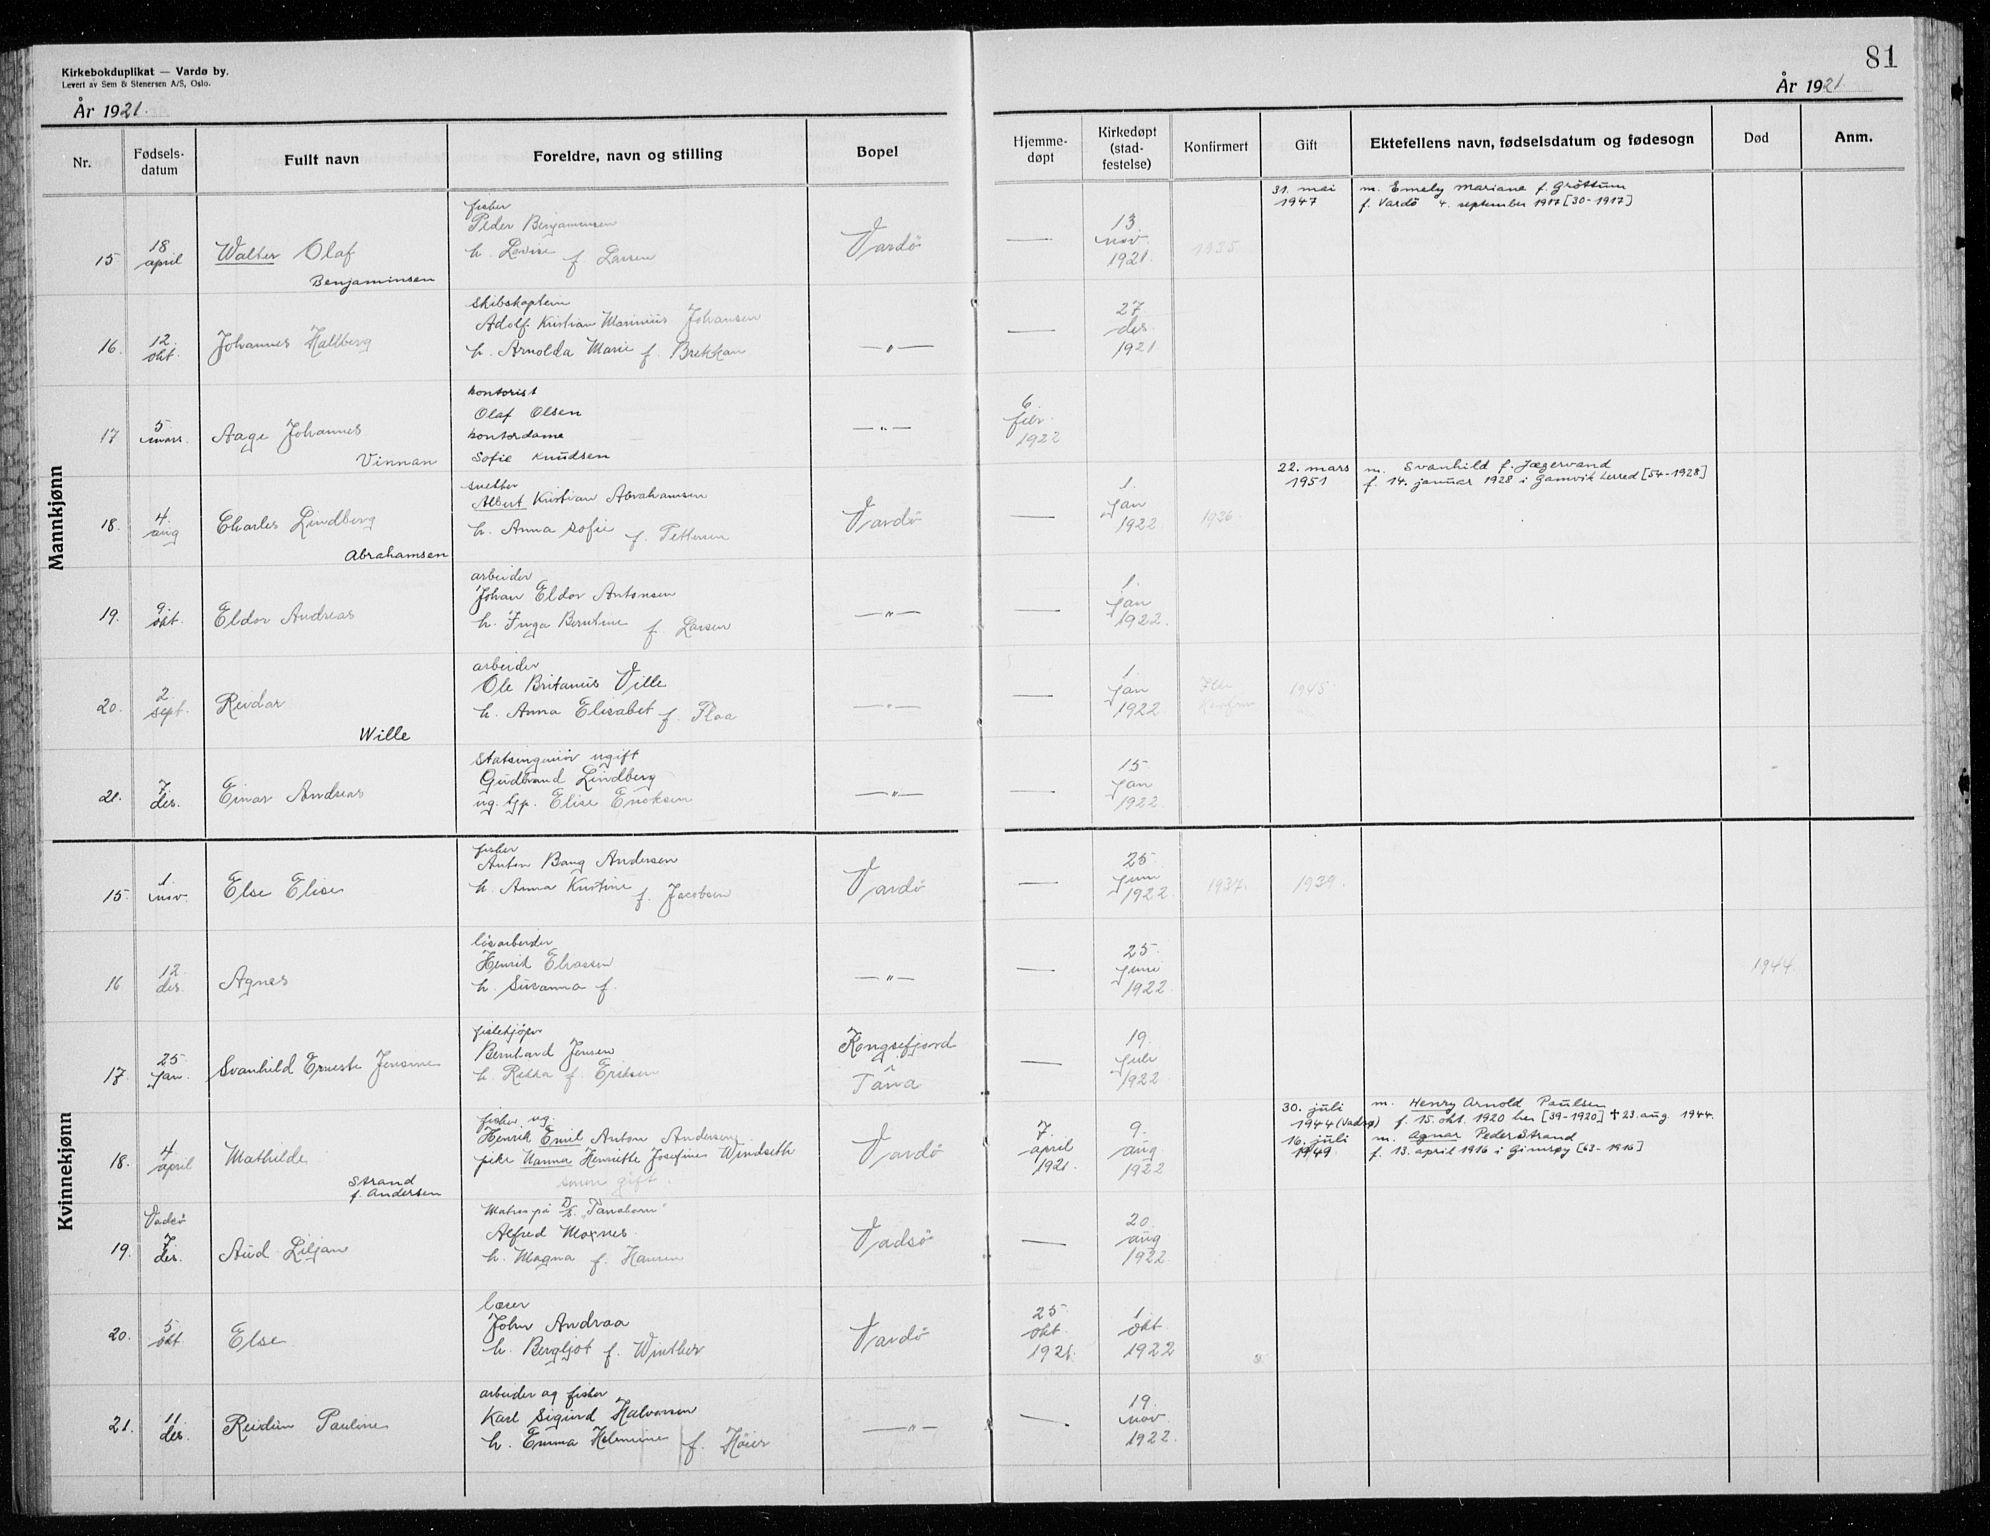 Kirkebokduplikat — Vardø by.
Levert av Sem & Stenersen A/S, Oslo.
År 1921.
81
År 1921
Nr. Fødselsdatum Fullt navn Foreldre, navn og stilling Bopel Hjemmedøpt Kirkedøpt (stadfestelse) Konfirmert Gift Ektefellens navn, fødselsdatum og fødesogn Død Anm.
Mannkjønn
fisker
31. mai 1947 m. Emely Mariane f. Gröttum
f. Vardö 4. september 1917 [30-1917]
Peder Benjaminsen
15 18 april Walter Olaf h. Lovise f. Larsen Vardö — 13. nov. 1921. 1935
Benjaminsen
skibskaptein
Adolf Kristian Marinius Johansen
16. 12. okt. Johannes Hallberg h. Arnolda Marie f. Brekkan —"— — 27. des. 1921
kontorist
Olaf Olsen
17 5 mars. Aage Johannes kontordame —"— 6. febr. 1922
Vinnan Sofie Knudsen
22. mars 1951 m. Svanhild f. Jægervand
f. 14. januar 1928 i Gamvik herred [54-1928]
Albert Kristian Abrahamsen
18. 4. aug Charles Lindberg h. Anna Sofie f. Pettersen Vardö — 1. jan 1922 1936.
Abrahamsen
arbeider
Johan Eldor Antonsen
19. 9. okt. Eldor Andreas h. Inga Berntine f. Larsen —"— — 1. jan 1922.
arbeider
Ole Britanius Ville
20. 2. sept. Reidar h. Anna Elisabet f. Flaa —"— — 1. jan 1922 1945
Wille
statsingeniör ugift
Gudbrand Lindberg
21. 7. des. Einar Andreas ug. Elise Enoksen —"— — 15. jan 1922.
Kvinnekjønn
fisker
Anton Bang Andersen
15. 1. nov. Else Elise h. Anna Kristine f. Jacobsen Vardö — 25. juni 1922. 1937. 1939.
lösarbeider
Henrik Eliassen
16 12. des. Agnes h. Susanna f. —"— — 25. juni 1922. 1944.
fiskekjöper
Bernhard Jensen Kongsfjord
17. 25. jan. Svanhild Erneste Jensine h. Rikka f. Eriksen Tana — 19. juli 1922
fisker ug.
30. juli 1944 (Vadsø) m. Henry Arnold Paulsen
f. 15. okt. 1920 her [39-1920] ✝ 23. aug. 1944.
Henrik Emil Anton Andersen
16. juli 1949. m. Agnar Peder Strand
f. 13. april 1916 i Gimsøy [63-1916]
18. 4 april Mathilde pike Nanna Henriette Josefine Windseth Vardö 7. april 1921. 9. aug 1922
Strand senere gift.
f. Andersen
Vadsö Matros på D/S. "Tanahorn"
Alfred Moxnes.
19. 7. des. Aud Liljan h. Magna f. Hansen Vadsö — 20. aug 1922.
John Andraa
20. 5 okt Else h. Bergljot f. Winther Vardö 25. okt. 1921. 1. okt 1922
arbeider og fisker
Karl Sigurd Halvorsen
21. 11. des. Reidun Pauline h. Emma Helmine f. Höier —"— — 19. nov. 1922.